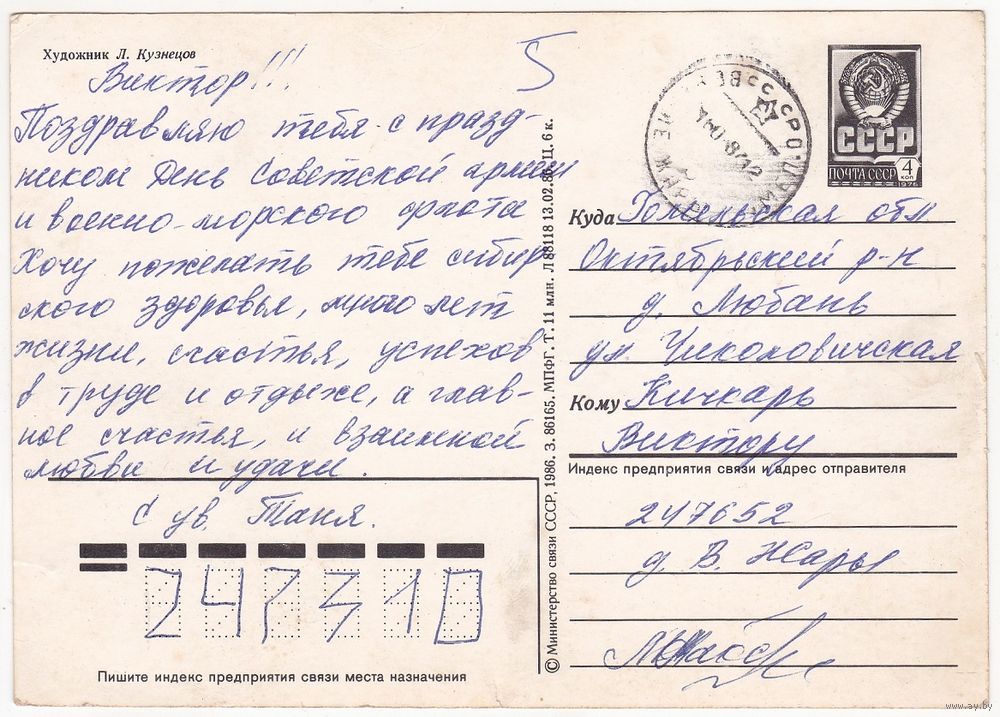 Художник Л. Кузнецов
5
Виктор!!!
Поздравляю тебя с празд-
ником День Советской армии
и военно-морского флота
Хочу пожелать тебе сибир
ского здоровья, много лет
жизни, счастья, успехов
в труде и отдыхе, а глав-
ное счастья, и взаимной
любви и удачи.
С ув. Таня.
247310
Пишите индекс предприятия связи места назначения
© Министерство связи СССР, 1986. З. 86165. МПФГ. Т. 11 млн. Л 88118 13.02.86. Ц. 6 к.
СССР
ПОЧТА СССР
4 коп
1976
Куда Гомельская обл
Октябрьский р-н
д. Любань
ул. Чиколовичская
Кому Кичкарь
Виктору
Индекс предприятия связи и адрес отправителя
247652
д. В. Жары
www.ay.by